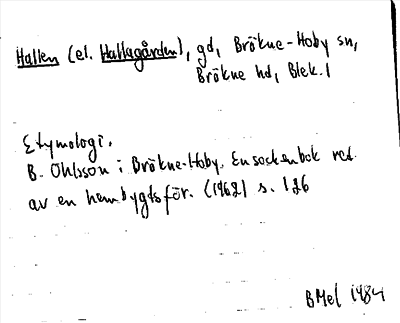 Hallen (el. Hallagården), gd, Bräkne-Hoby sn,
Bräkne hd, Blek.l
Etymologi.
B. Ohlsson i Bräkne-Hoby. En sockenbok red.
av en hembygdsför. (1962) s. 126
BMel 1984